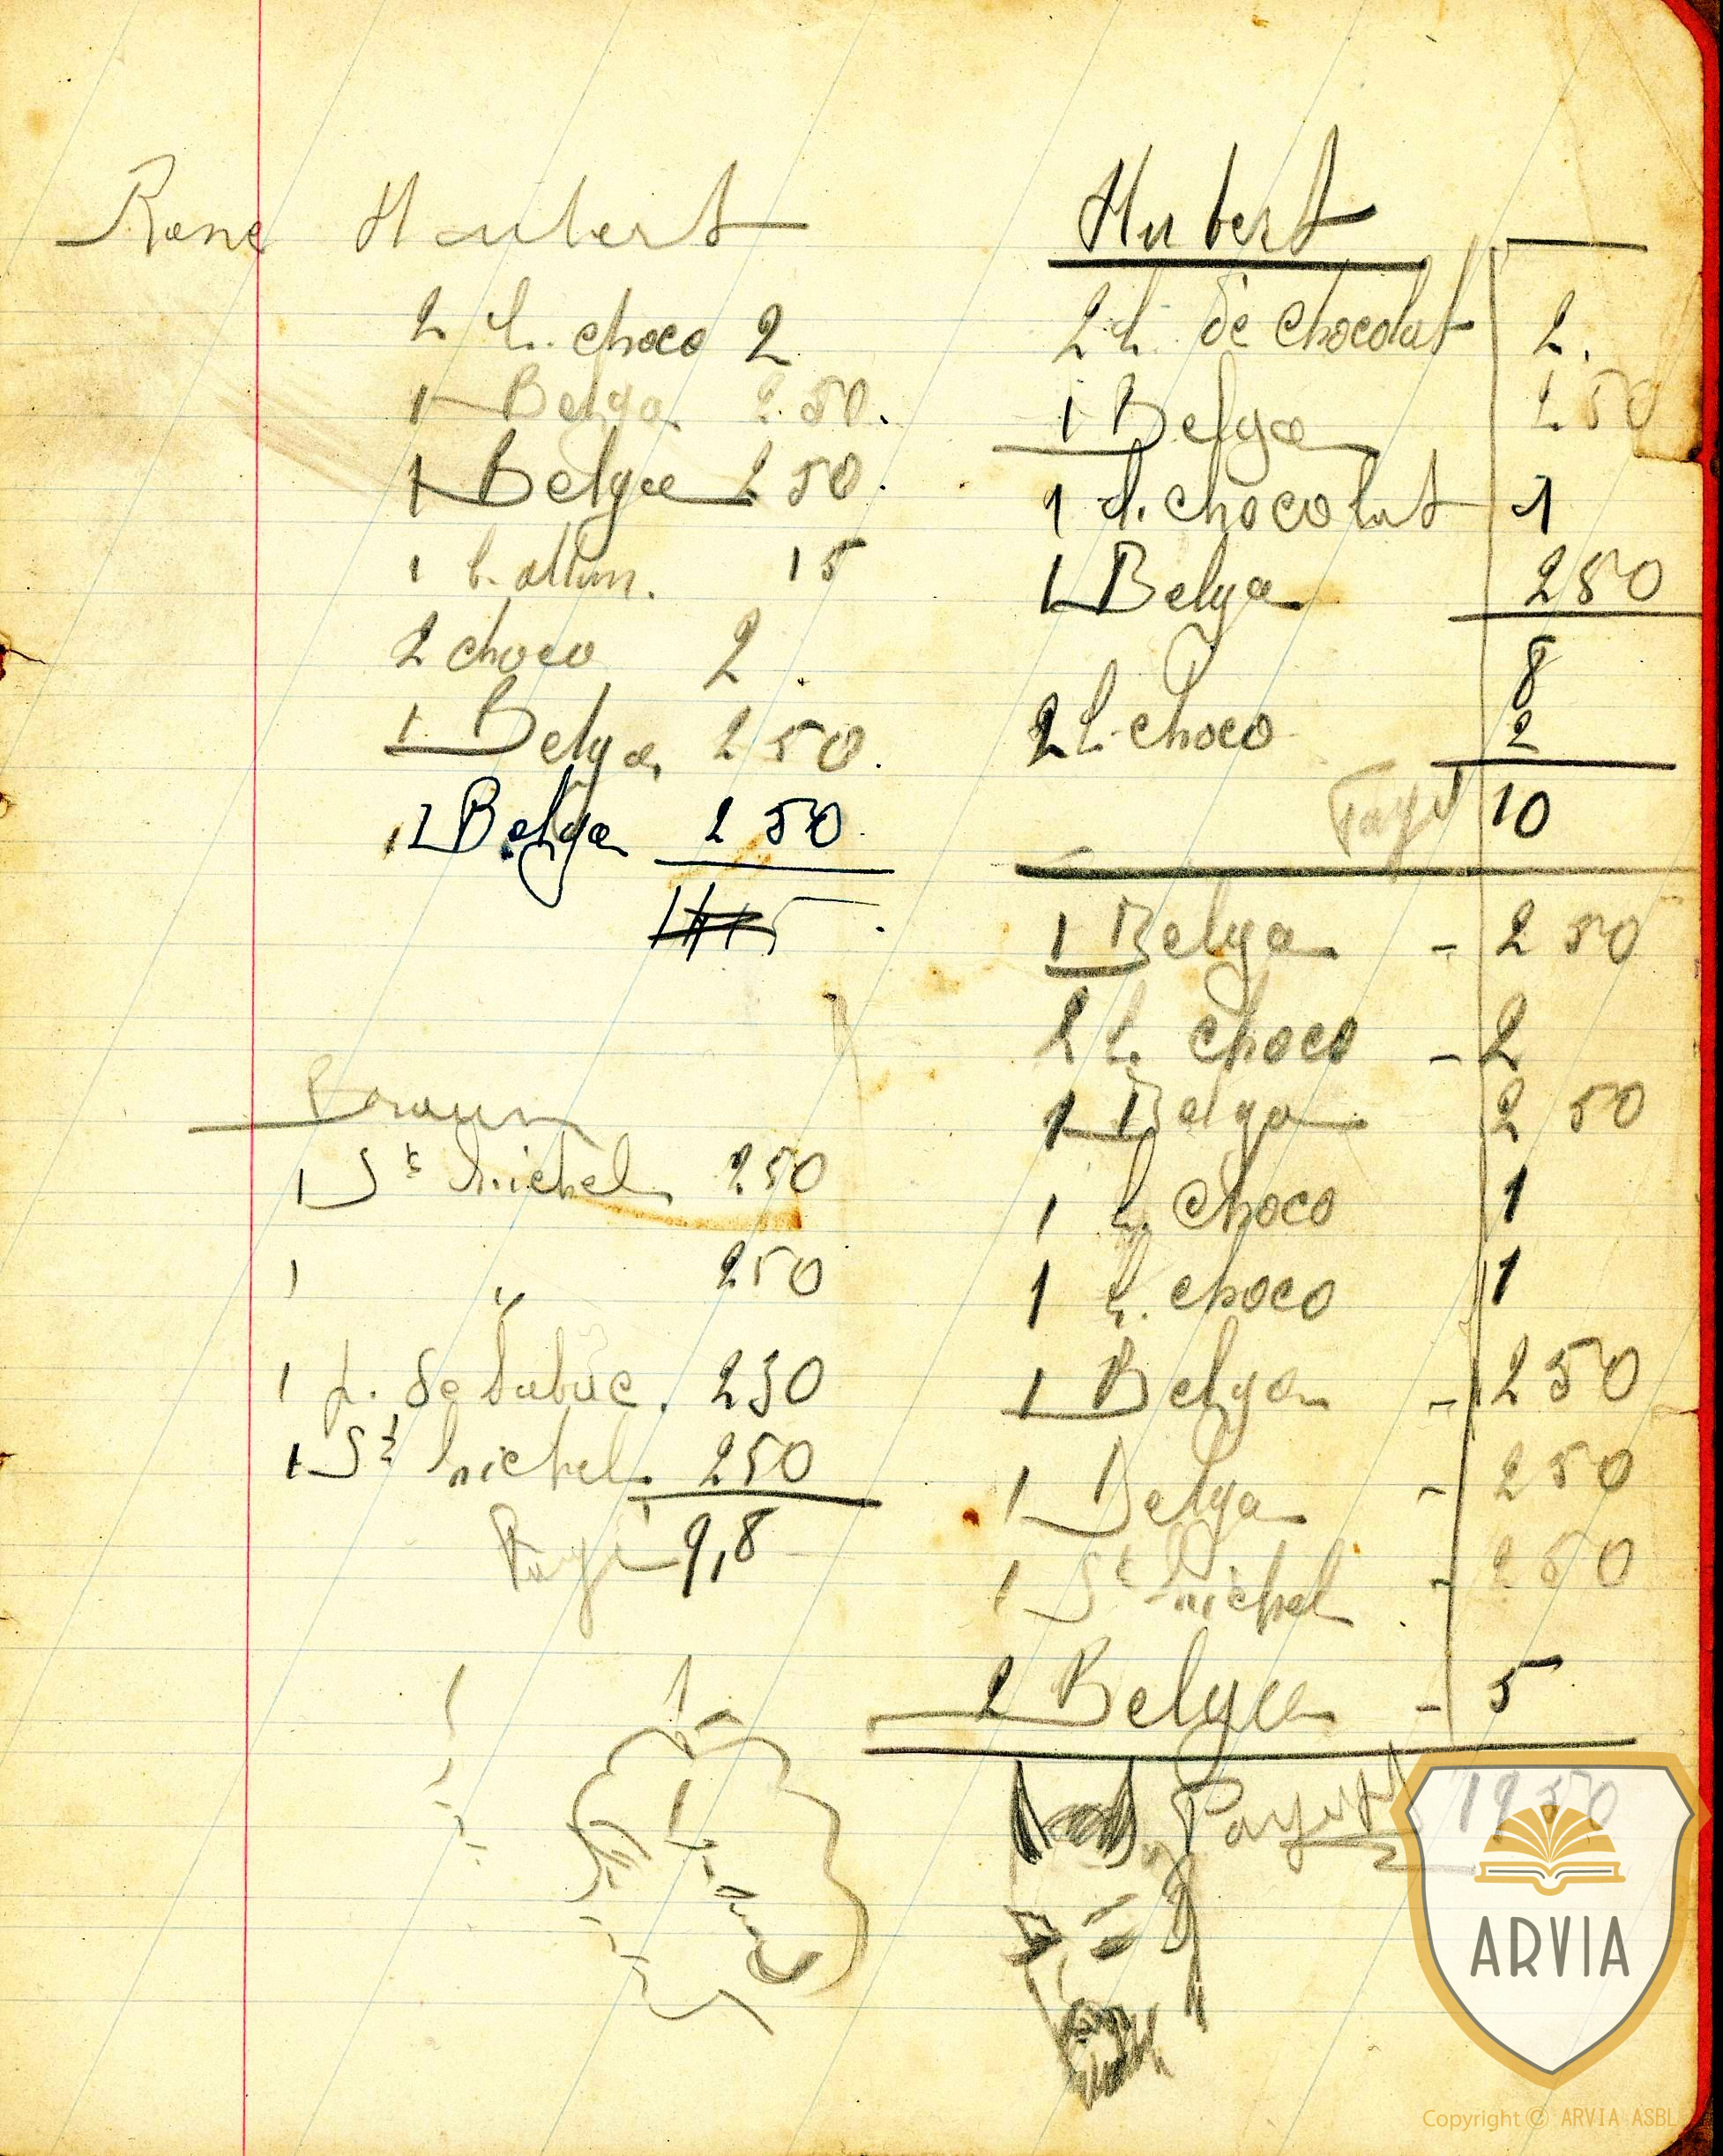 René Haubert
2 b. choco 2
1 Belga 2.50.
1 Belga 2 50.
1 b. allum. 15
2 choco 2.
1 Belga, 2 50.
1 Belga 2 50.
Braun
1 St Michel 250
1 " 250
1 p. de tabac. 250
1 St Michel. 250
Payé 9,8
Hubert
2 b. de chocolat 2.
1 Belga 2 50
1 b. chocolat 1
1 Belga 250
8
2 b. choco 2
Payé 10
1 Belga - 2 50
2 b. choco - 2
1 Belga 2 50
1 b. choco 1
1 b. choco 1
1 Belga - 250
1 Belga - 250
1 St Michel - 250
2 Belga - 5
Payé 19 50
ARVIA
Copyright © ARVIA ASBL